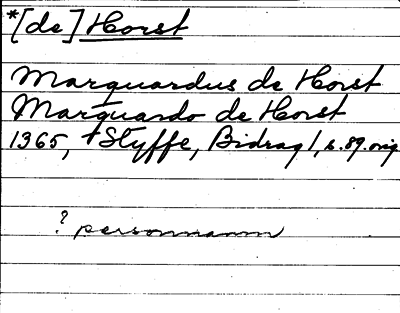 *[de] Horst
Marquardus de Horst
Marquardo de Horst
1365, +Styffe, Bidrag 1, s. 89. orig
? personnamn